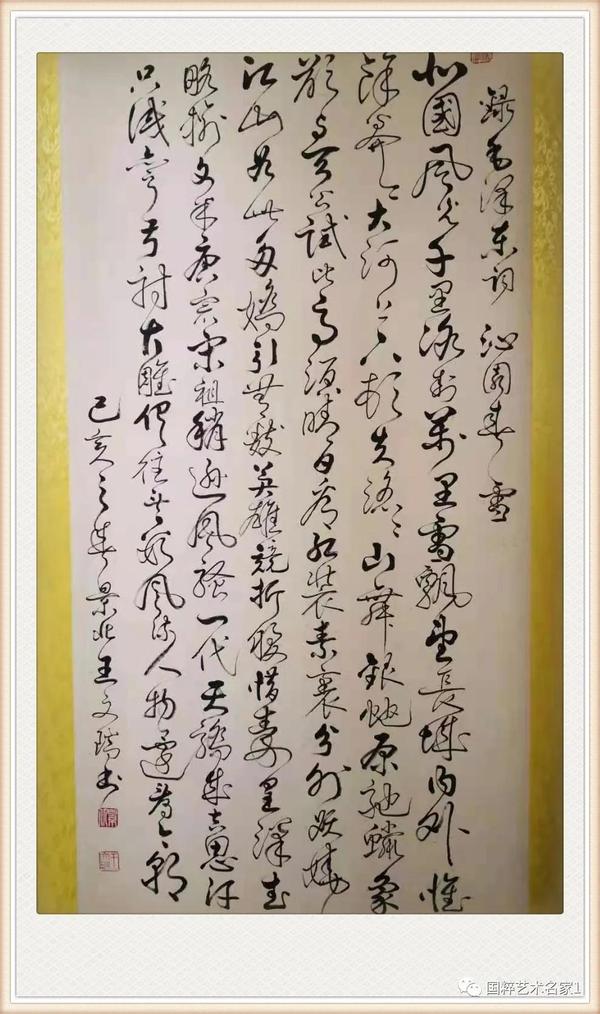 錄毛澤东詞 沁園春 雪
北國風光千里冰封萬里雪飄望長城内外惟
餘莽〻大河上下頓失滔〻山舞銀蛇原馳蠟象
欲与天公試比高須晴日看紅裝素裹分外妖嬈
江山如此多嬌引無數英雄競折腰惜秦皇漢武
略輸文采唐宗宋祖稍遜風騷一代天驕成吉思汗
只識彎弓射大雕俱往矣數風流人物還看今朝
己亥之春景北王文瑞书
国粹艺术名家1